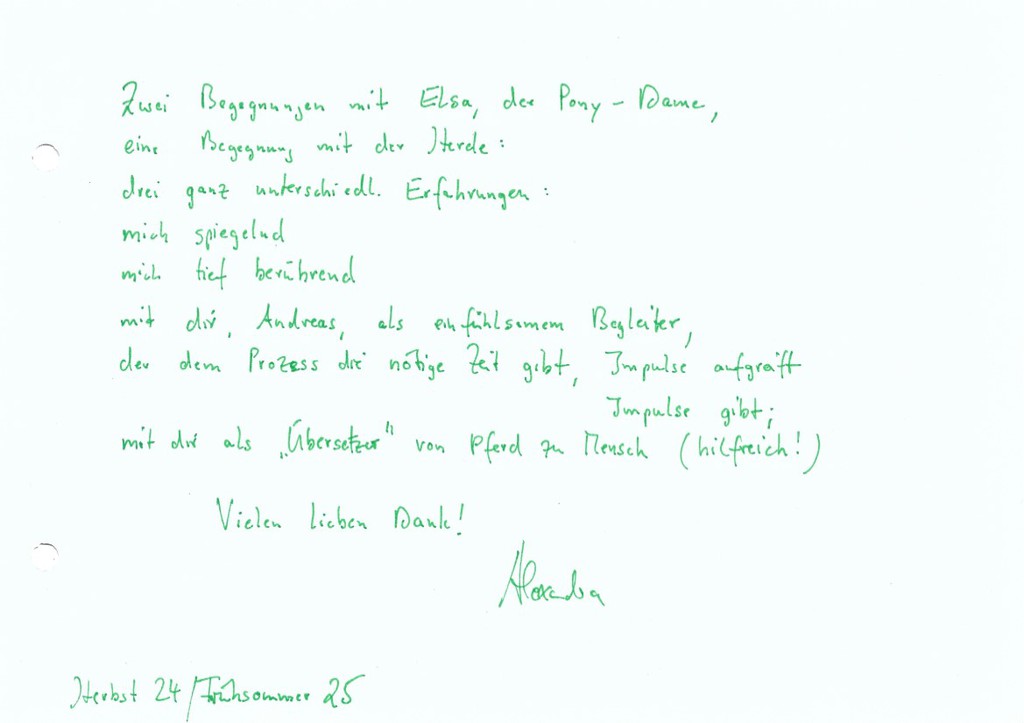 Zwei Begegnungen mit Elsa, der Pony-Dame,
eine Begegnung mit der Herde:
drei ganz unterschiedl. Erfahrungen:
mich spiegelnd
mich tief berührend
mit dir, Andreas, als einfühlsamem Begleiter,
der dem Prozess die nötige Zeit gibt, Impulse aufgreift
Impulse gibt;
mit dir als „Übersetzer" von Pferd zu Mensch (hilfreich!)
Vielen lieben Dank!
Alexandra
Herbst 24/Frühsommer 25